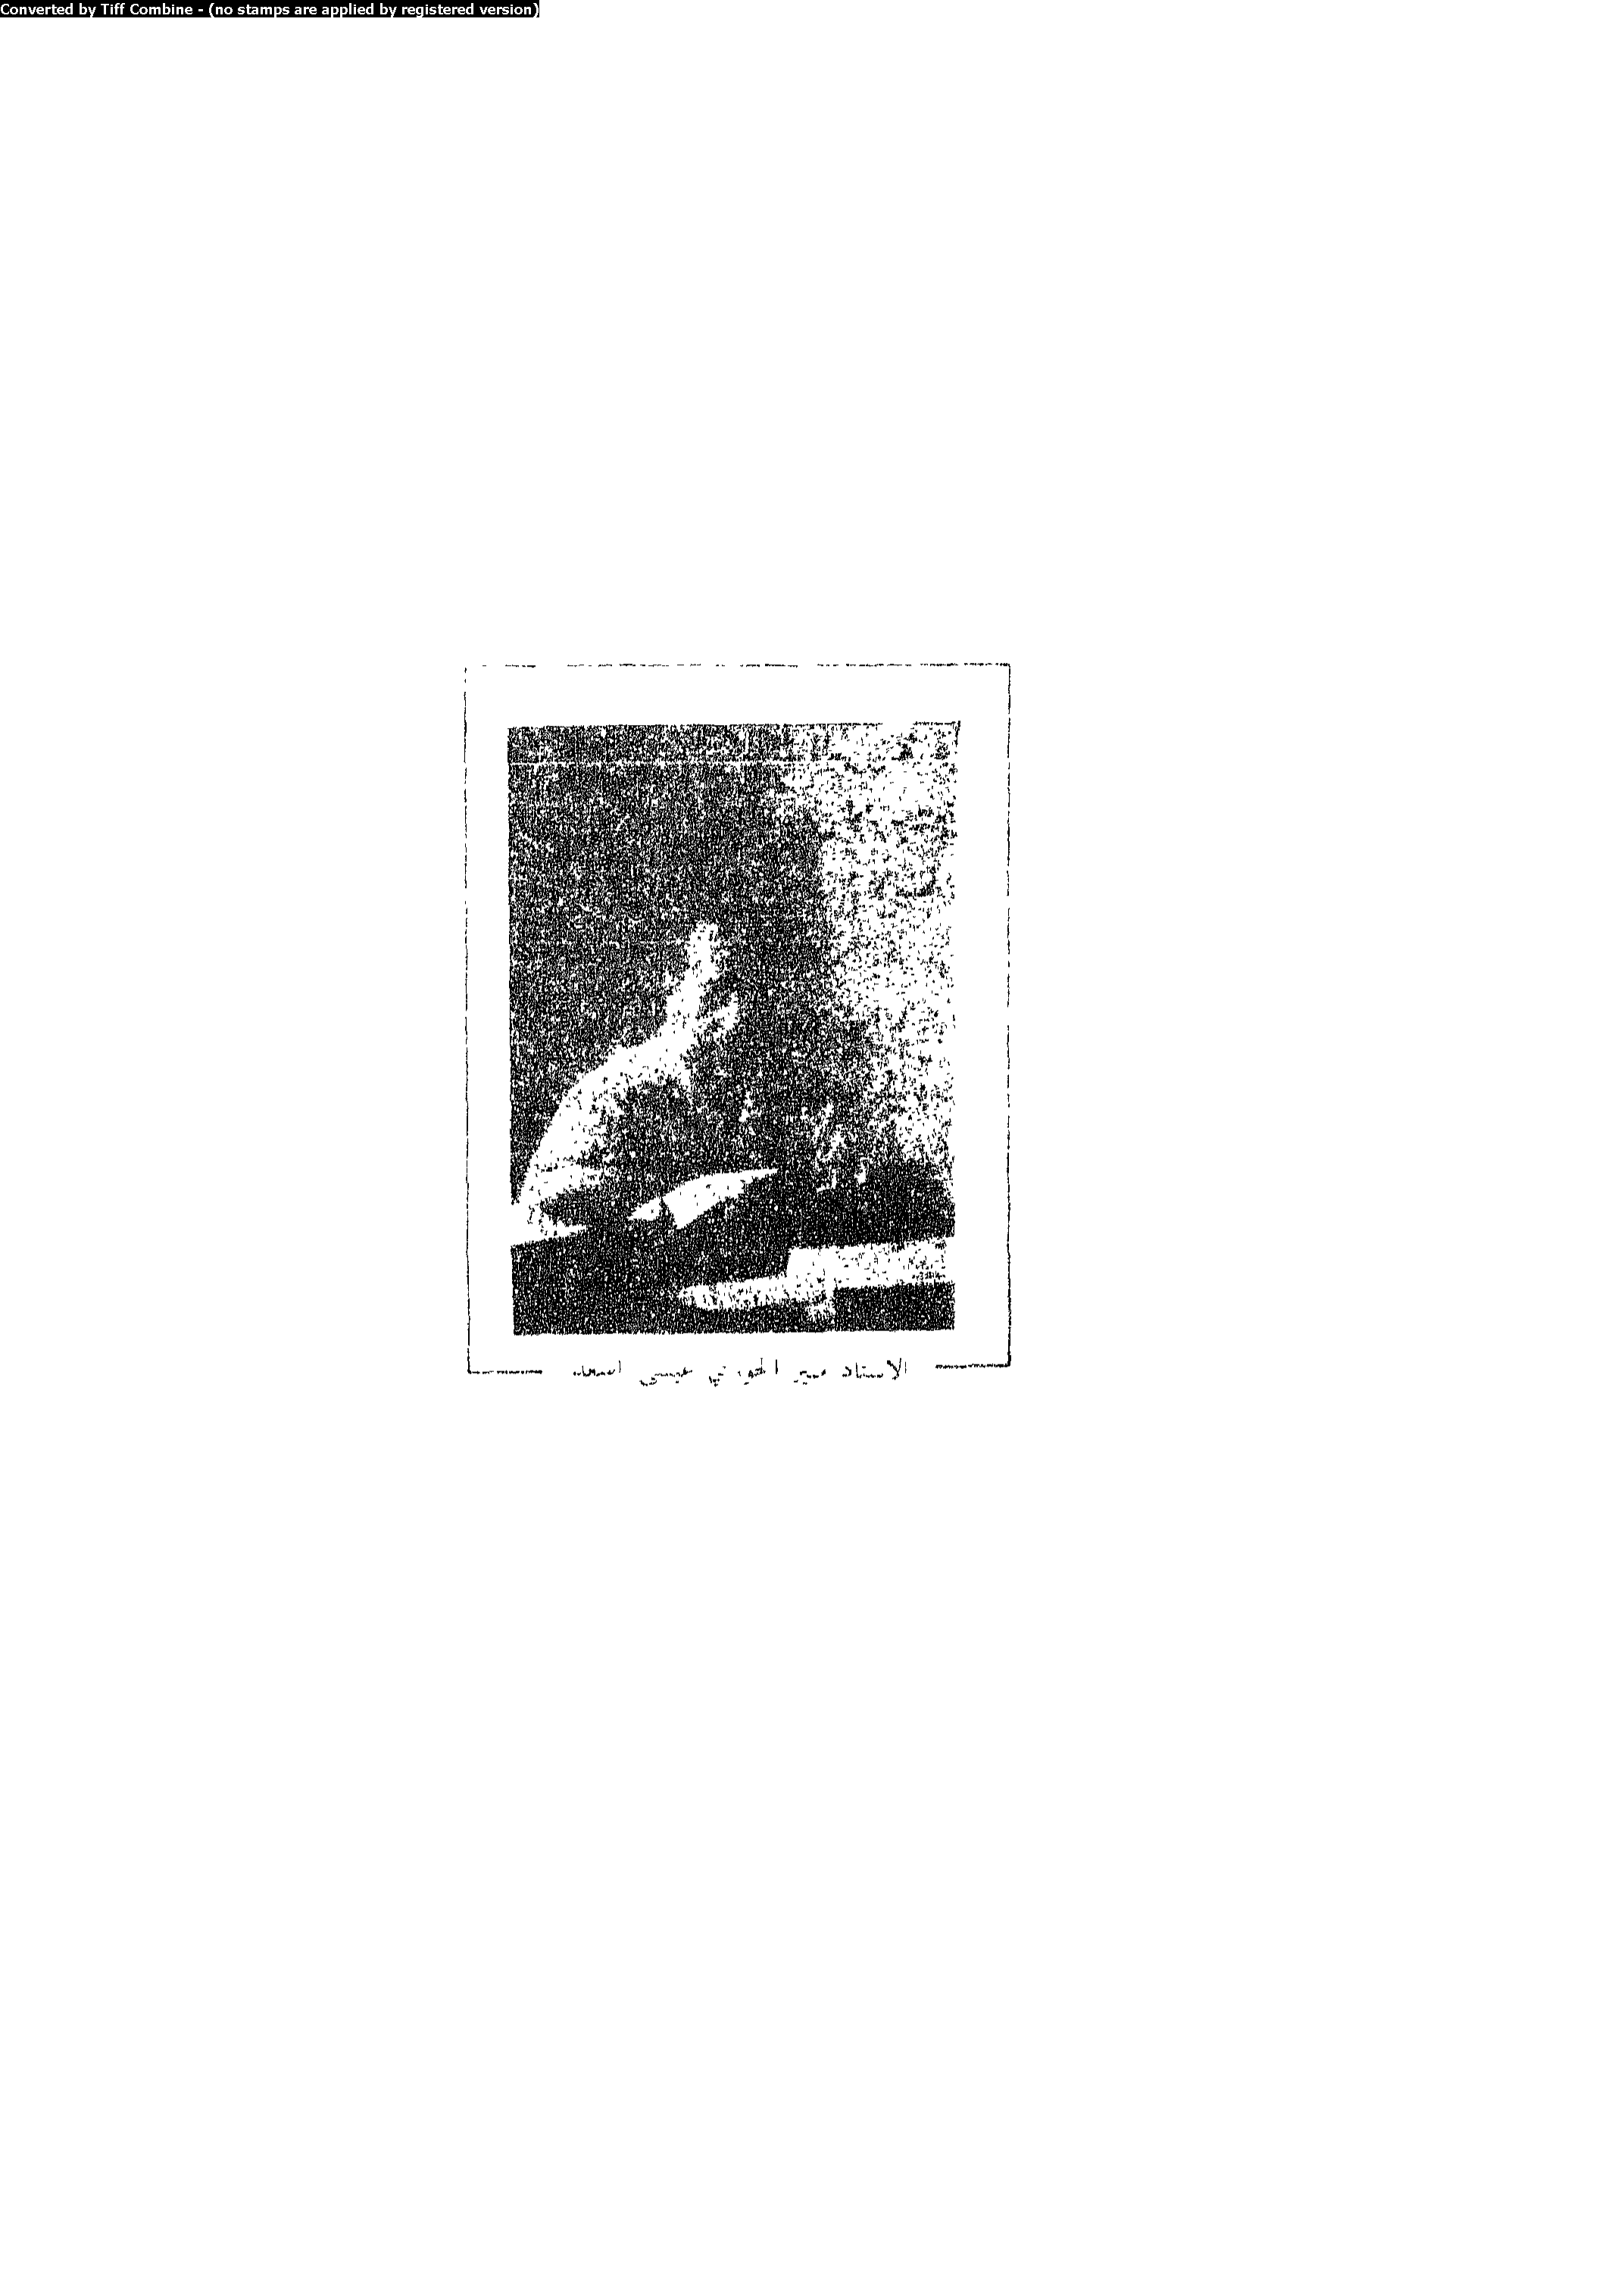 Converted by Tiff Combine - (no stamps are applied by registered version)
الاستاذ منير الخوري عيسى اسعد